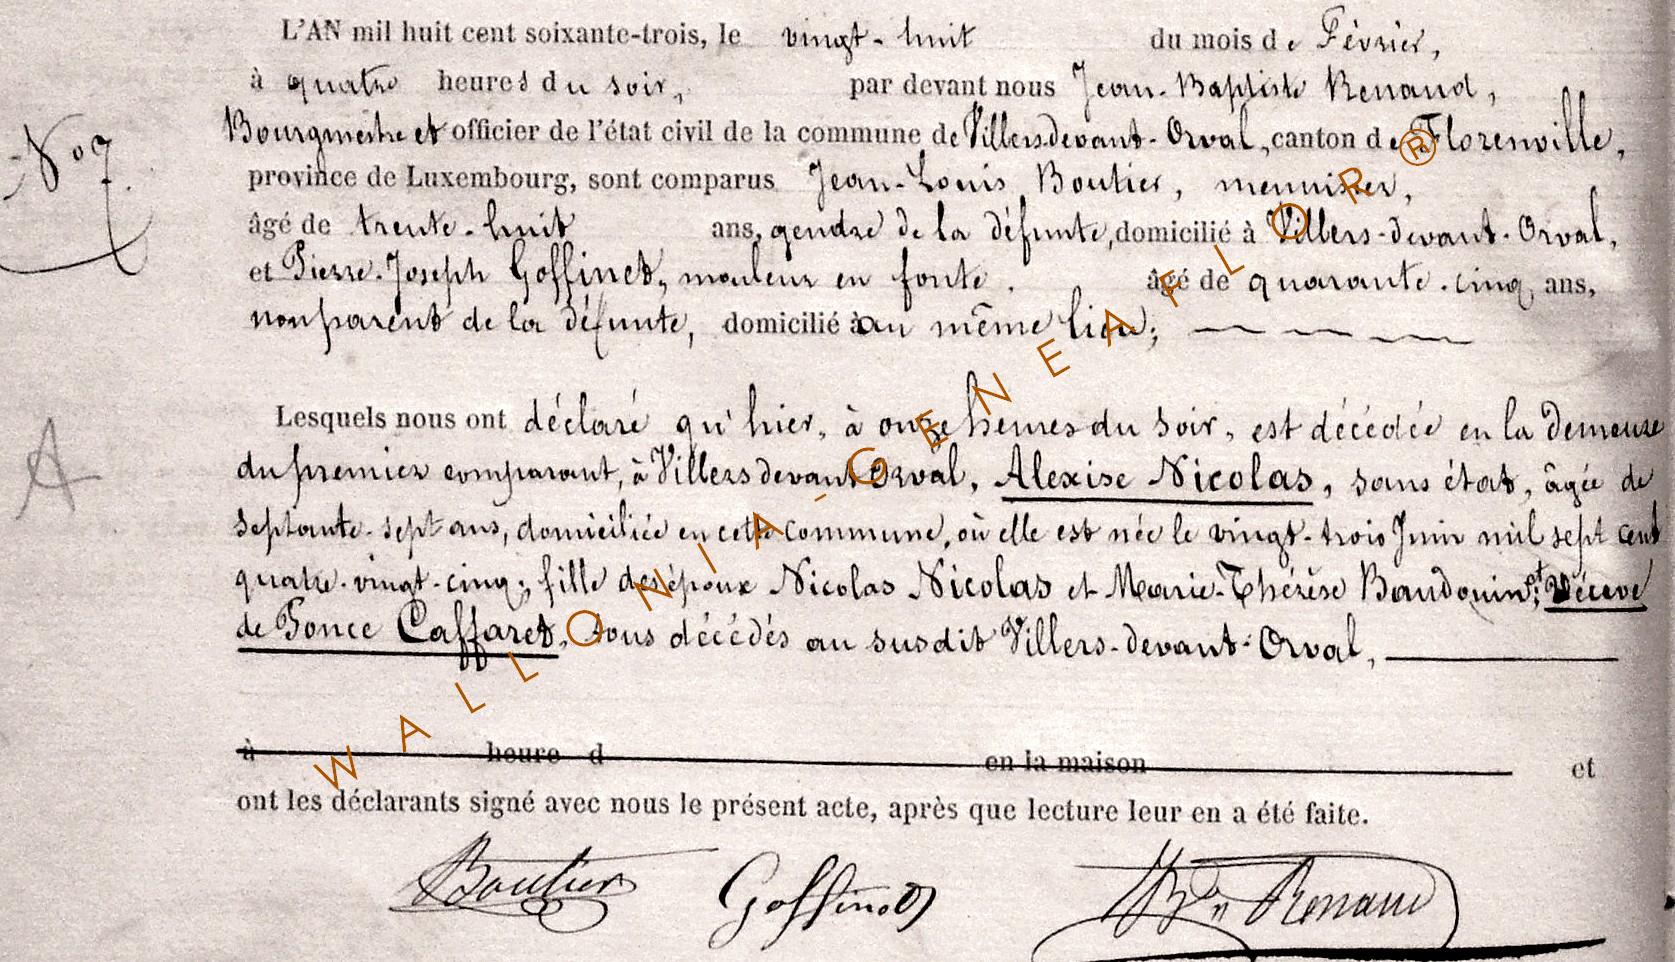 L'AN mil huit cent soixante-trois, le vingt-huit du mois de Février,
à quatre heures du soir, par devant nous Jean-Baptiste Renaud,
Bourgmestre et officier de l'état civil de la commune de Villers devant-Orval, canton de Florenville,
N° 7.
province de Luxembourg, sont comparus Jean-Louis Boutier, meunier,
âgé de trente-huit ans, gendre de la défunte, domicilié à Villers-devant-Orval,
et Pierre-Joseph Goffinet, mouleur en fonte. âgé de quarante-cinq ans,
non parent de la défunte, domicilié au même lieu;
Lesquels nous ont déclaré qu'hier, à onze heures du soir, est décédée en la demeure
A
du premier comparant, à Villers devant Orval, Alexise Nicolas, sans état, âgée de
septante-sept ans, domiciliée en cette commune, où elle est née le vingt-trois Juin mil sept cent
quatre-vingt-cinq; fille des époux Nicolas Nicolas et Marie-Thérèse Baudouin; et Veuve
de Ponce Caffaret, tous décédés au susdit Villers-devant-Orval,
à heure d en la maison et
ont les déclarants signé avec nous le présent acte, après que lecture leur en a été faite.
Boutier Goffinet Renaud
WALLONIA-GENEAFLOR®